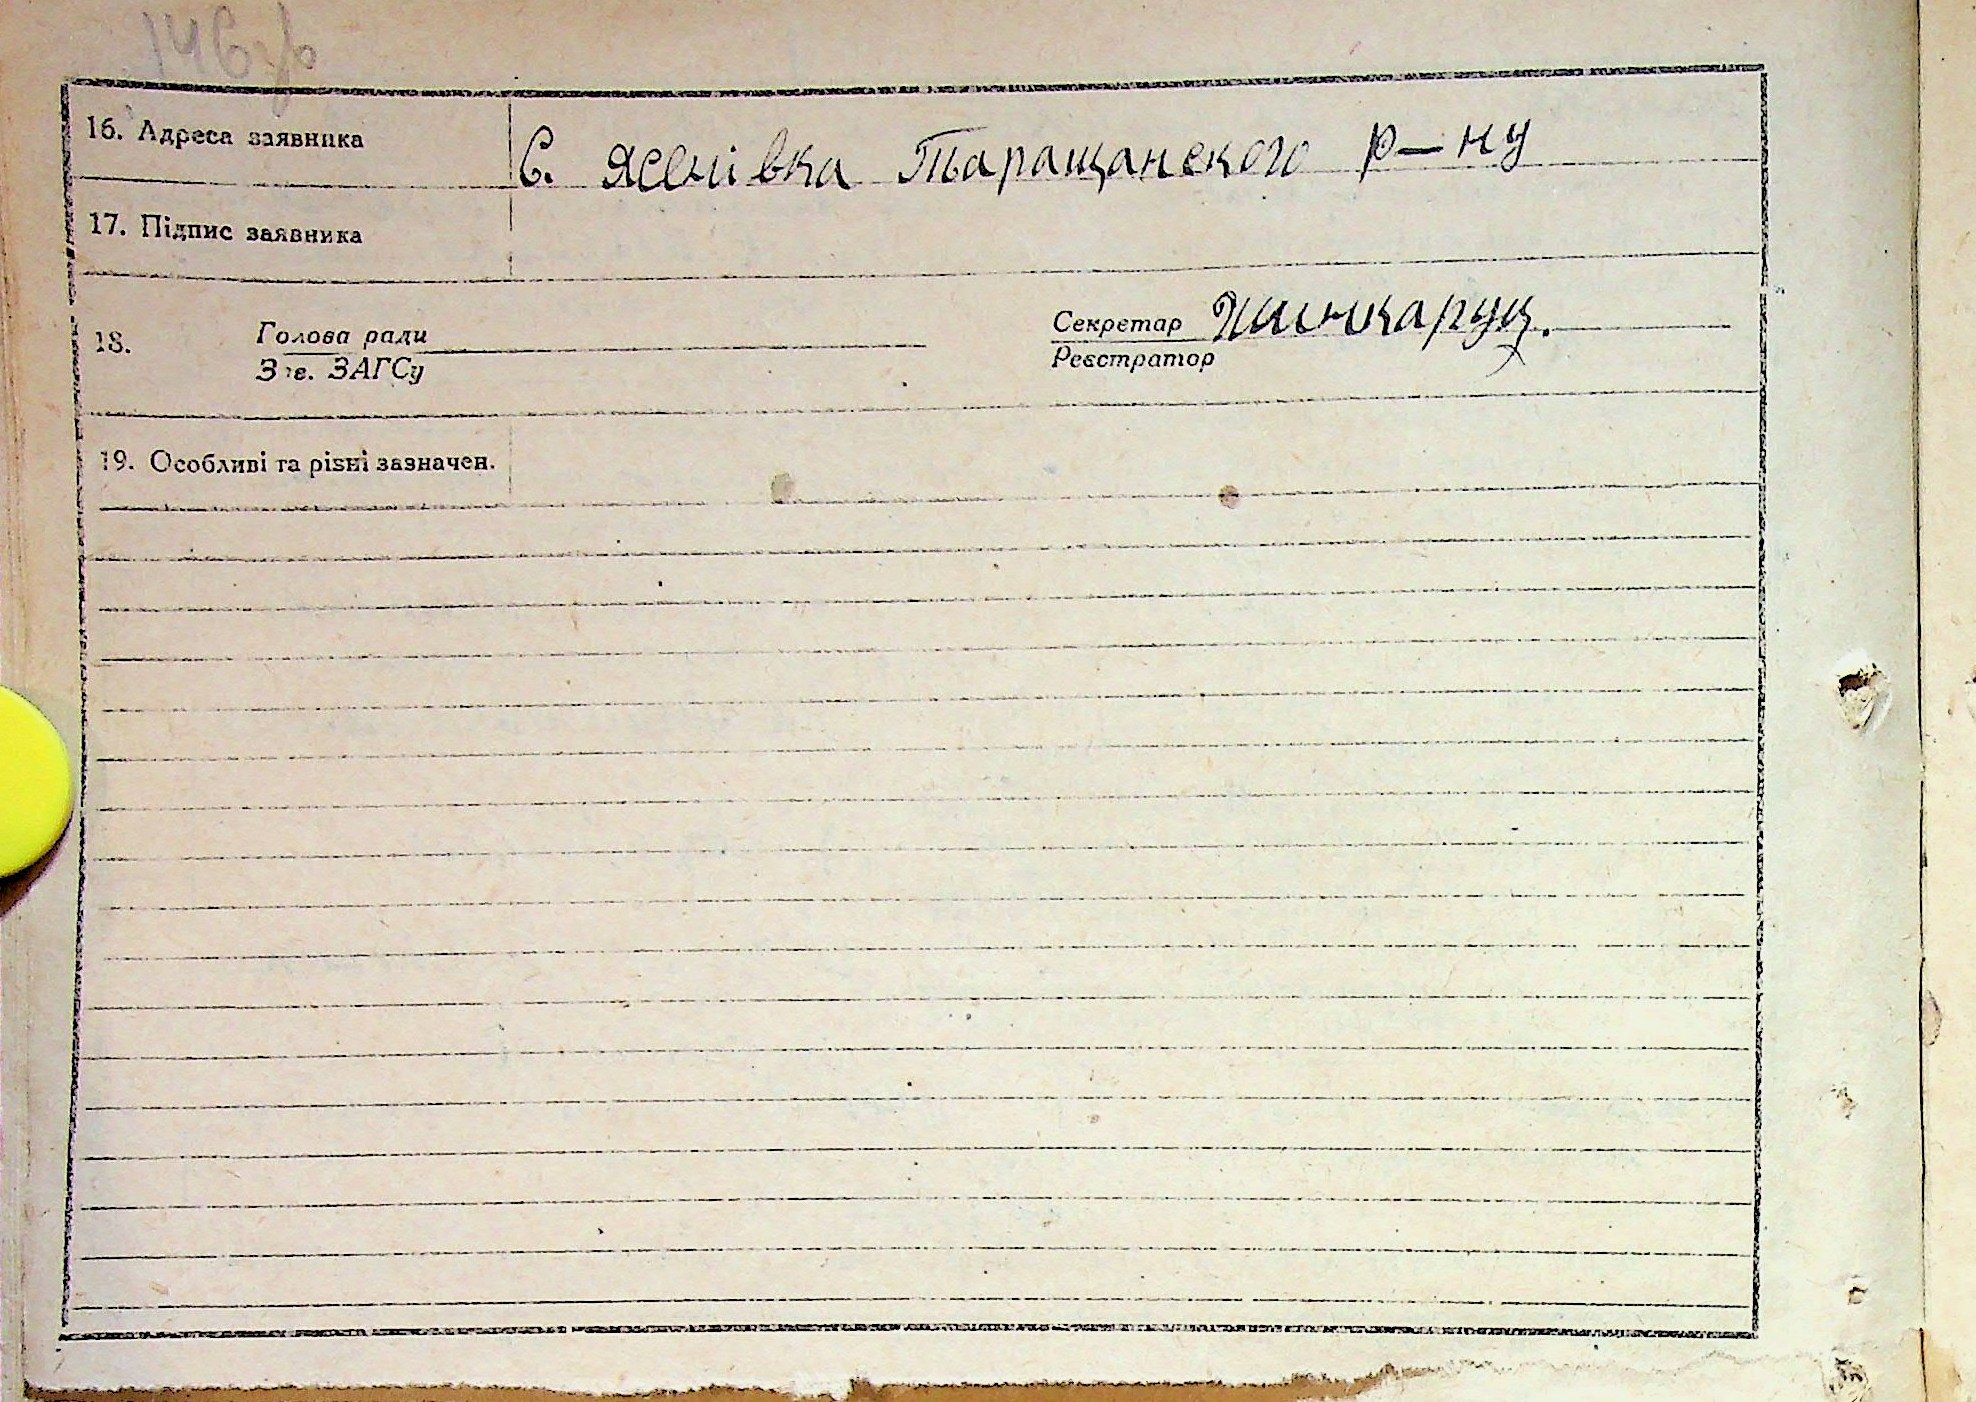 146 зв
16. Адреса заявника
С. Ясенівка Таращанского р-ну
17. Підпис заявника
18.
Голова ради
Зав. ЗАГСу
Секретар
Реєстратор
19. Особливі та різні зазначен.